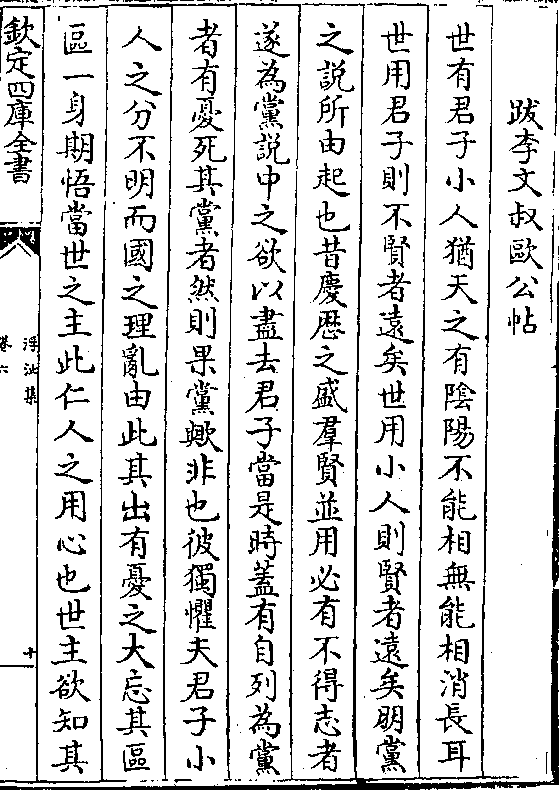 跋李文叔歐公帖
世有君子小人猶天之有陰陽不能相無能相消長耳
世用君子則不賢者遠矣世用小人則賢者遠矣朋黨
之說所由起也昔慶厯之盛羣賢並用必有不得志者
遂為黨說中之欲以盡去君子當是時蓋有自列為黨
者有憂死其黨者然則果黨歟非也彼獨懼夫君子小
人之分不明而國之理亂由此其出有憂之大忘其區
區一身期悟當世之主此仁人之用心也世主欲知其
欽定四庫全書
浮沚集
卷六
十